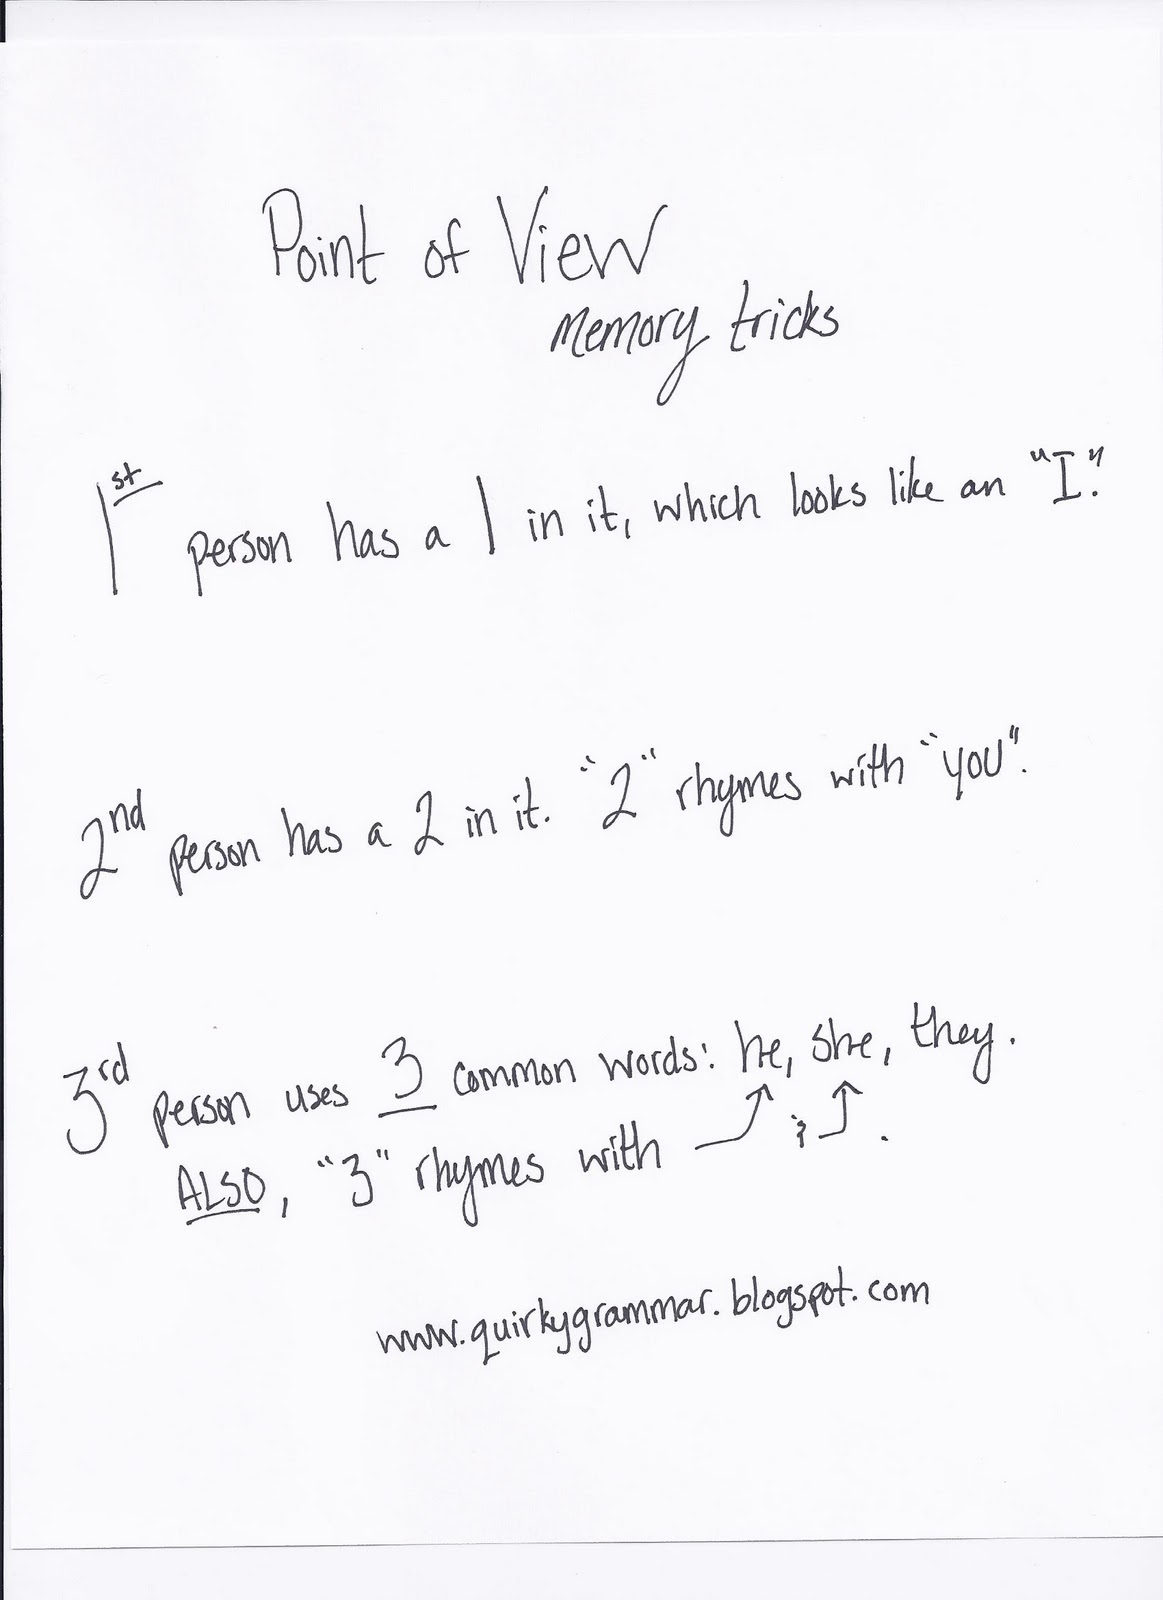 Point of View
memory tricks
1st person has a 1 in it, which looks like an "I".
2nd person has a 2 in it. "2" rhymes with "you".
3rd person uses 3 common words: he, she, they.
ALSO, "3" rhymes with & .
www.quirkygrammar.blogspot.com